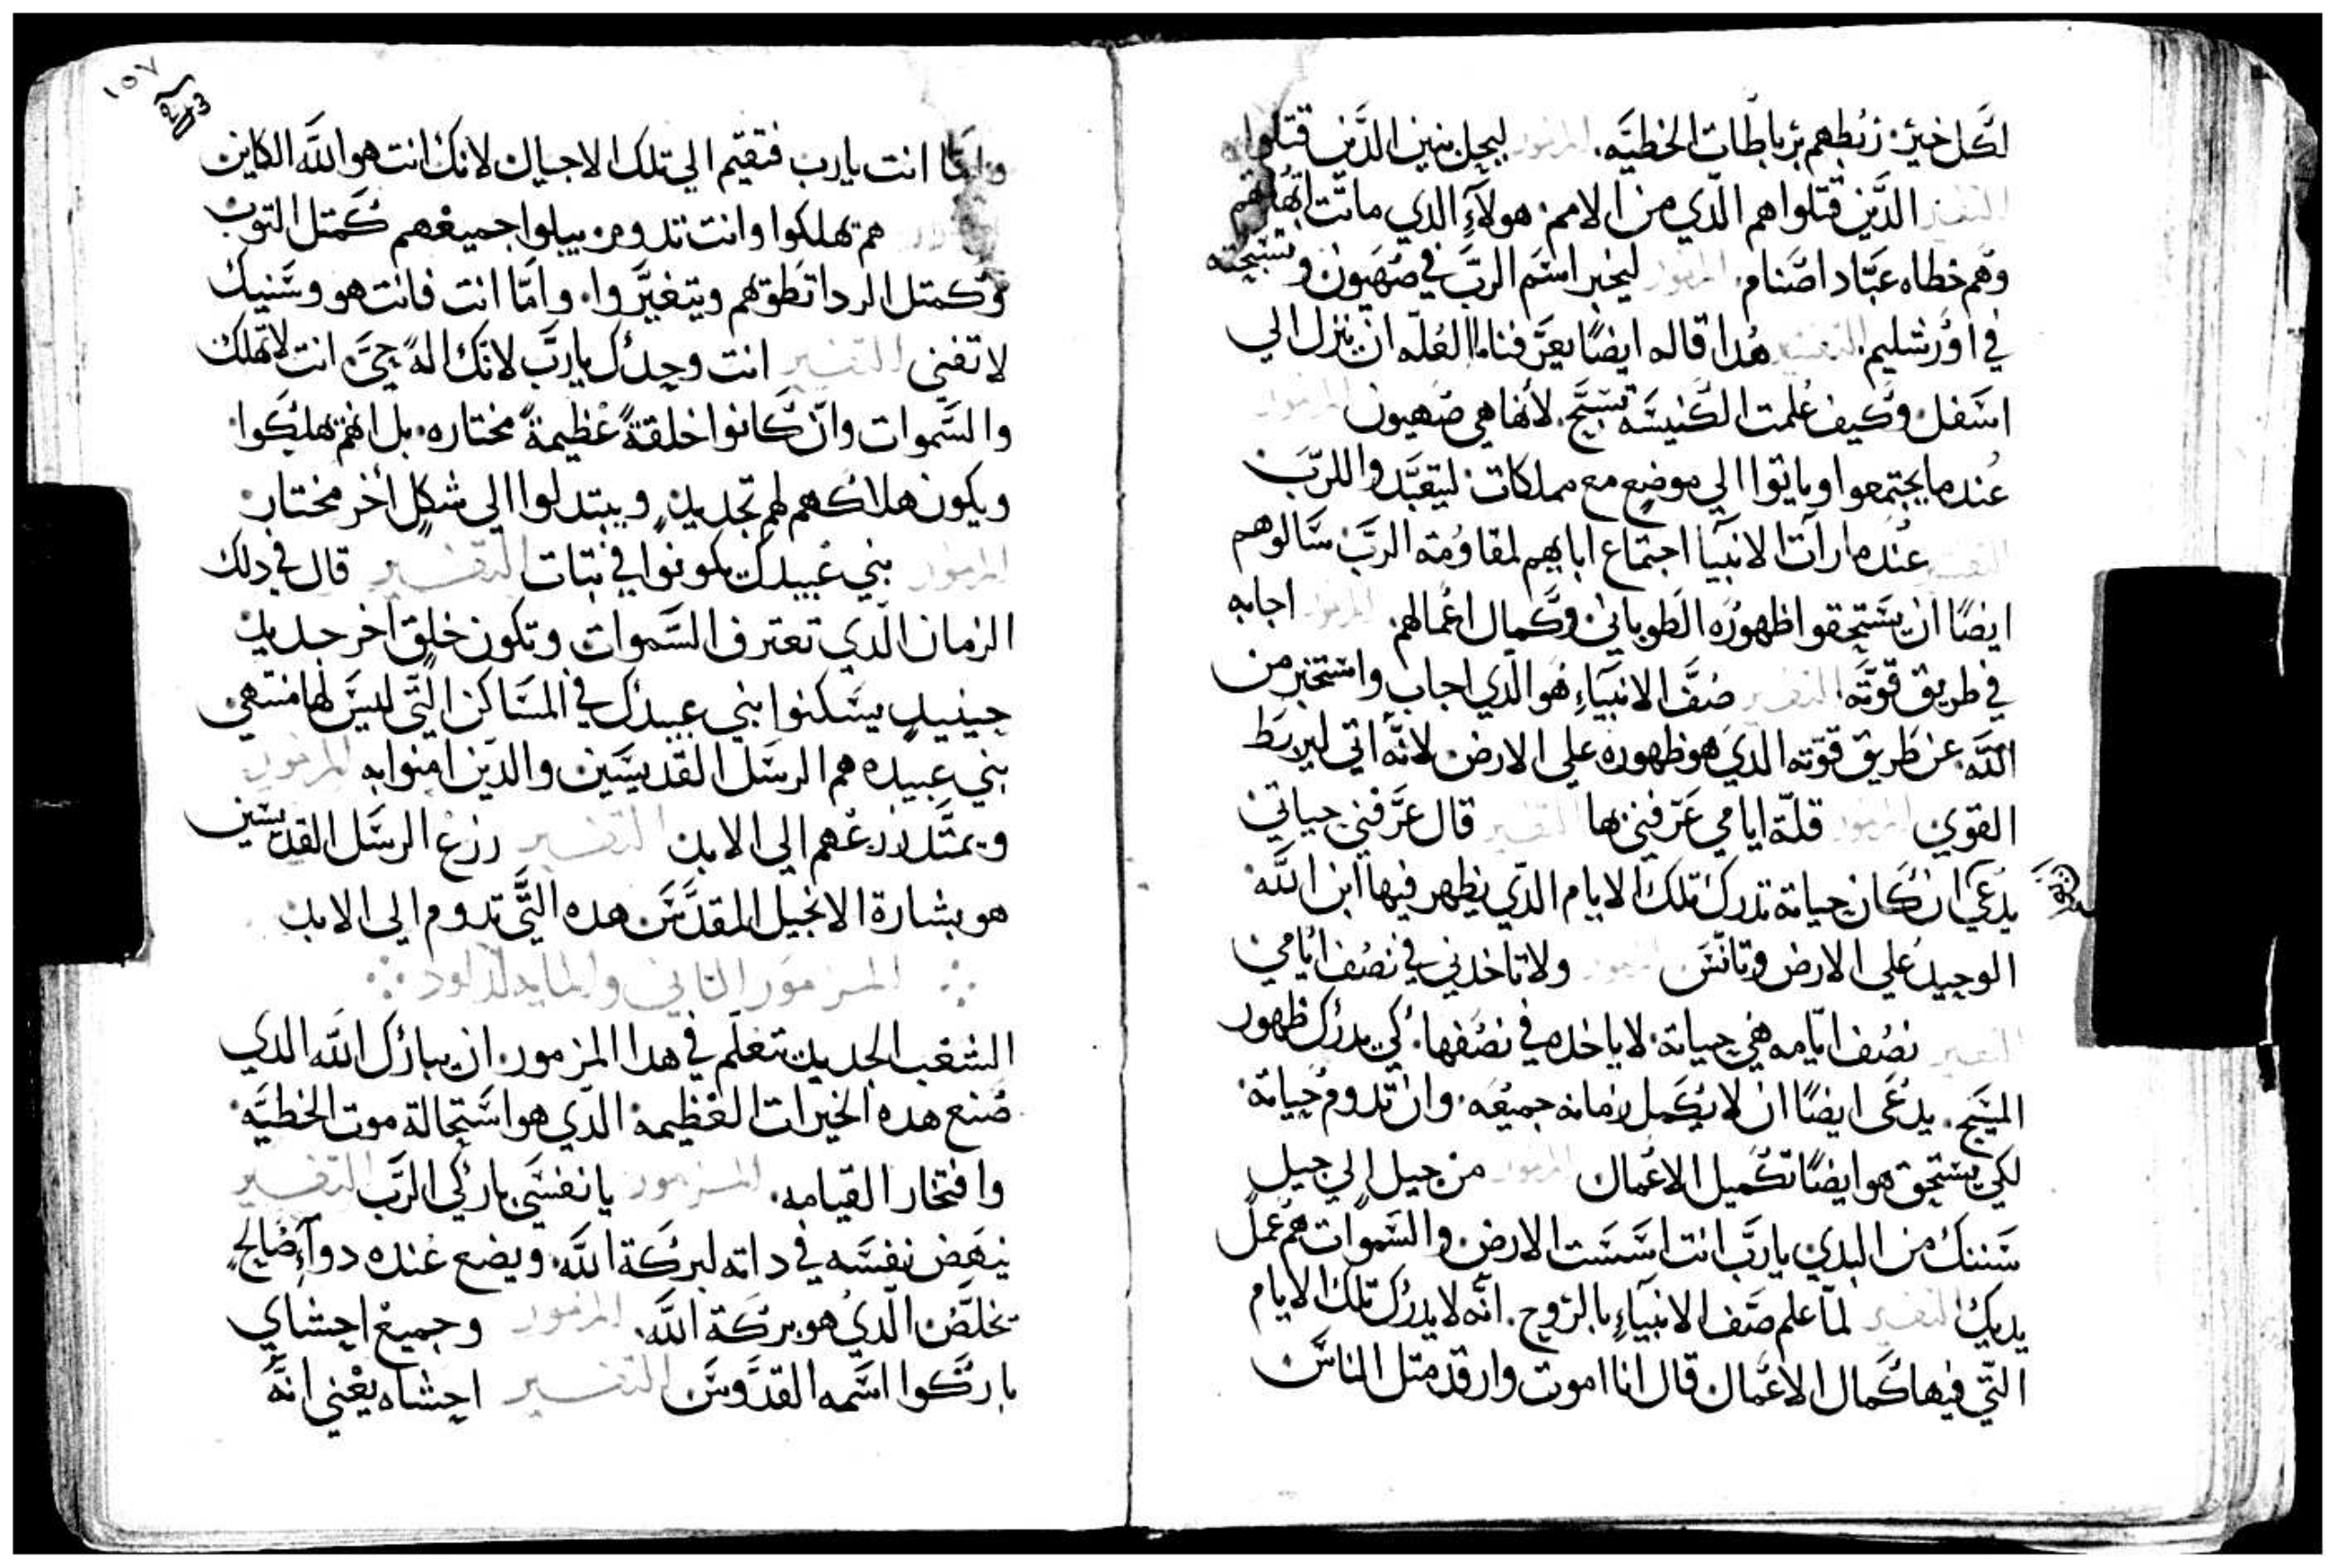 لكل خير. ربطهم برباطات الخطيه. المزمور ليحل بنين الدين قتلوا
التفسير الدين قتلواهم الدي من الامم. هولآء الدي ماتت ابهاتهم
وهم خطاه عباد اصنام. المزمور ليخبر اسم الرب في صهيون وتسبحته
في اورشليم. التفسير هدا قاله ايضًا يعرفنا العله ان نزل الي
اسفل. وكيف علمت الكنيسه تسبح. لانها هي صهيون المزمور
عندما يجتمعوا وياتوا الي موضع مع مملكات ليتعبدوا للرب
التفسير عندما رات الانبيآ اجتماع ابايهم لمقاومة الرب سالوهم
ايضًا ان يستحقوا ظهوره الطوباني وكمال اعمالهم. المزمور اجابه
في طريق قوته. التفسير صف الانبيآء هو الدي اجاب واستخبر من
الله. عن طريق قوته الدي هو ظهوره علي الارض لانه اتي ليربط
القوي المزمور قلة ايامي عرفني بها التفسير قال عرفني حياتي
يدعي ان كان حياته تدرك تلك الايام الدي يظهر فيها ابن الله
الوحيد علي الارض وتانس المزمور ولا تاخدني في نصف ايامي
التفسير نصف ايامه هي حياته. لا ياخده في نصفها. كي يدرك ظهور
المسيح. يدعي ايضًا ان لا يكمل زمانه جميعه. وان تدوم حياته
لكي يستحق هو ايضًا تكميل الاعمال المزمور من جيل الي جيل
سنينك من البدي يارب انت اسست الارض والسموات هم عمل
يديك التفسير لما علم صف الانبيآء بالروح. انه لا يدرك تلك الايام
التي فيها كمال الاعمال قال انا اموت وارقد متل الناس
١٥٧
واما انت يارب فتقيم الي تلك الاجيال لانك انت هو الله الكاين
هم تهلكوا وانت تدوم يبلوا جميعهم كمتل التوب
وكمتل الردا تطوهم ويتغيروا. واما انت فانت هو وسنيك
لا تفني التفسير انت وحدك يارب لانك اله حي انت لا تهلك
والسموات وان كانوا خلقة عظيمة مختاره. بل انهم تهلكوا.
ويكون هلاكهم لهم تجديد. ويبتدلوا الي شكل اخر مختار
المزمور بني عبيدك يكونوا في تبات التفسير قال في دلك
الزمان الدي تعترف السموات وتكون خلق اخر جديد
حينيد يسكنوا بني عبيدك في المساكن التي ليس لها منتهي
بني عبيده هم الرسل القديسين والدين امنوا به المزمور
ويمتد زرعهم الي الابد التفسير زرع الرسل القديسين
هو بشارة الانجيل المقدس هده التي تدوم الي الابد
المزمور التاني والمايه لداود
الشعب الجديد تعلم في هدا المزمور. ان يبارك الله الدي
صنع هده الخيرات العظيمه الدي هو استحالة موت الخطيه
وافتخار القيامه. المزمور يا نفسي باركي الرب التفسير
ينهض نفسه في داته لبركة الله. ويضع عنده دوآء صالح
تخلص الدي هو بركة الله. المزمور وجميع احشاي
باركوا اسمه القدوس التفسير احشاه يعني انه